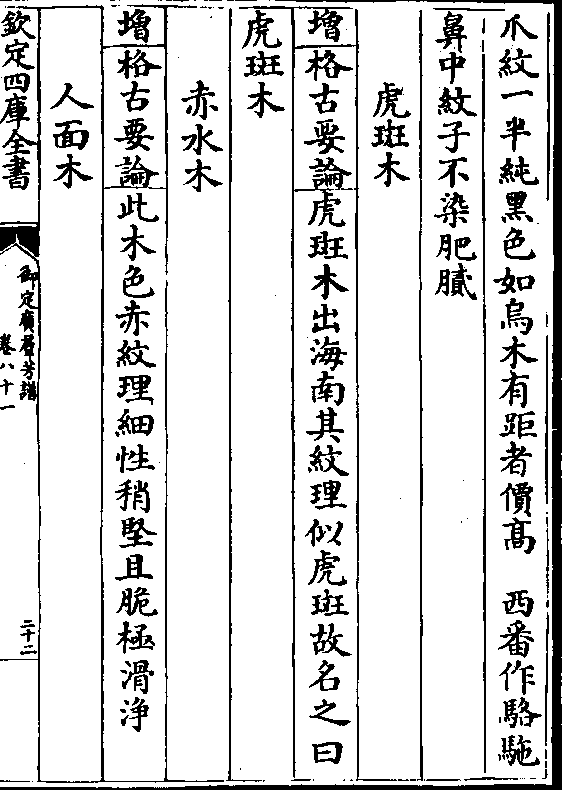 爪紋一半純黑色如烏木有距者價髙　西番作駱駞
鼻中紋子不染肥膩
虎斑木
增格古要論虎斑木出海南其紋理似虎斑故名之曰
虎斑木
赤水木
增格古要論此木色赤紋理細性稍堅且脆極滑浄
人面木
欽定四庫全書
御定廣羣芳譜
卷八十一
二十二